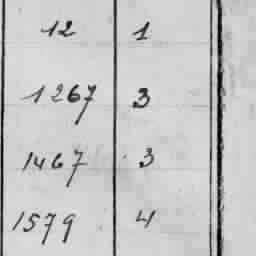 12 1
1267 3
1467 3
1579 4